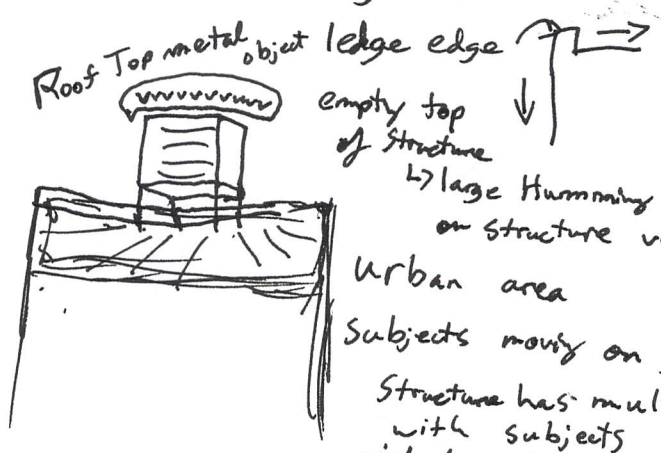 Roof Top metal object
ledge edge
empty top
of structure
↳ large Humming
on structure
Urban area
Subjects moving on
Structure has
with subjects